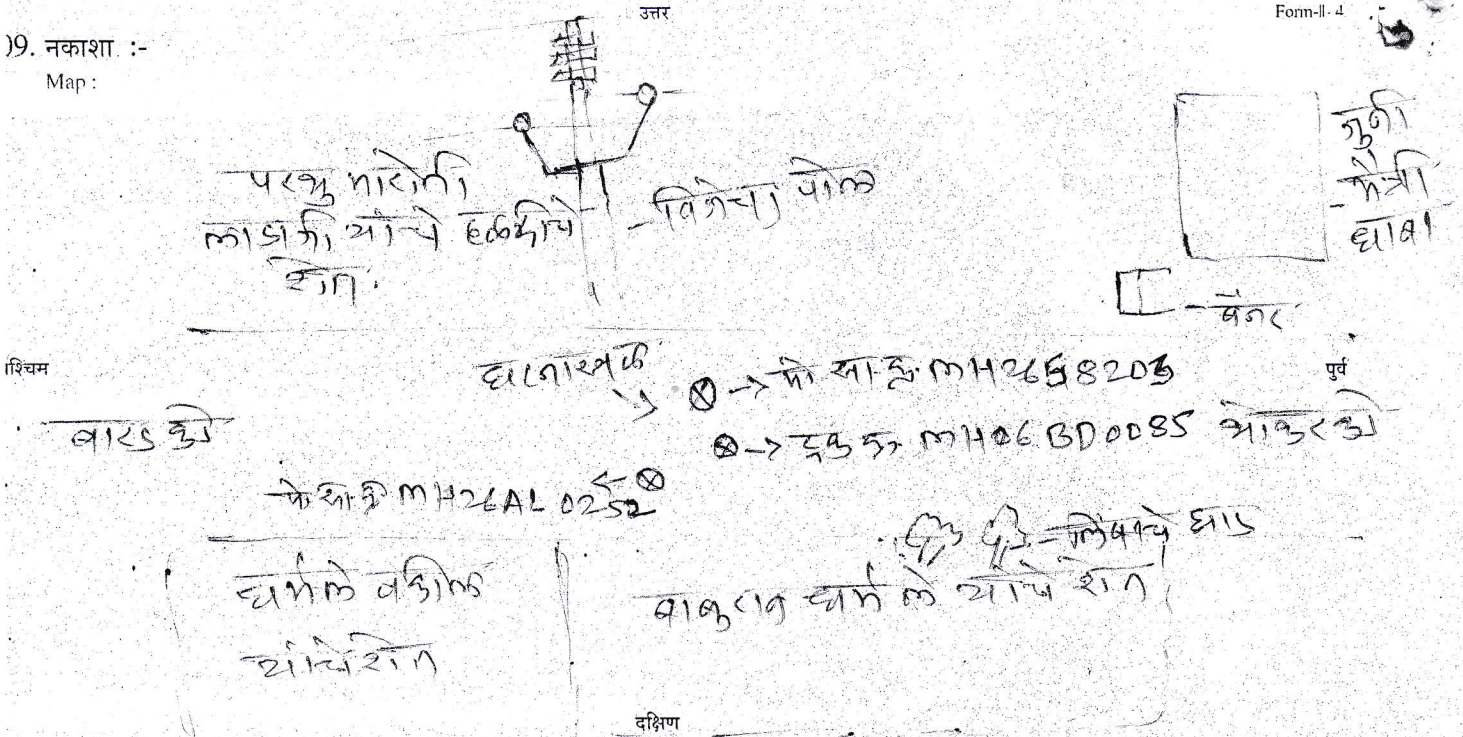 उत्तर
Form-II-4
09. नकाशा :-
Map :
परभु मारोती
लाडाजी यांचे हळदीचे
शेत.
विजेचा पोल
जुनी
मैत्री
धाबा
बॅनर
पश्चिम
पुर्व
घटनास्थळ
मो सा क्र MH26 8203
बारड कडे
ट्रक क्र MH06BD0085 भोकर कडे
मो सा क्र MH26AL0252
लिंबाचे झाड
धर्मले वकील
यांचे शेत
बाबुराव धर्मले यांचे शेत
दक्षिण